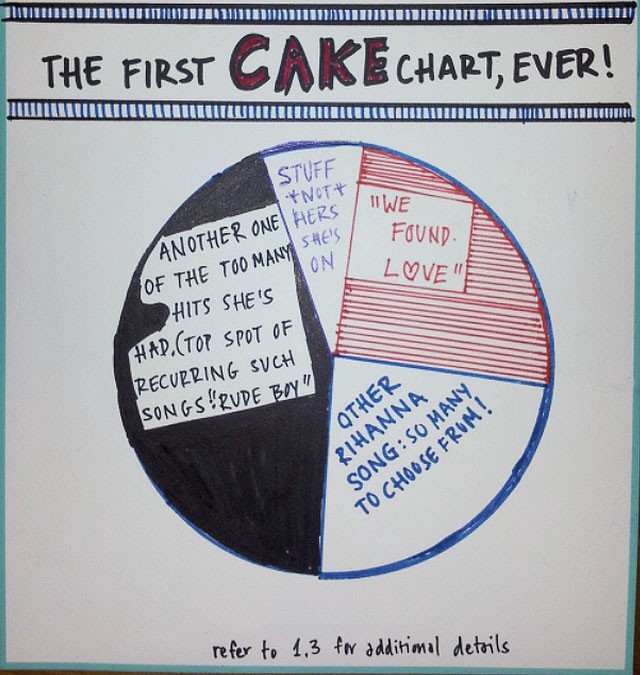 THE FIRST CAKE CHART, EVER!
STUFF
*NOT*
HERS
SHE'S
ON
"WE
FOUND
L♡VE"
ANOTHER ONE
OF THE TOO MANY
HITS SHE'S
HAD.(TOP SPOT OF
RECURRING SUCH
SONGS:"RUDE BOY"
OTHER
RIHANNA
SONG: SO MANY
TO CHOOSE FROM!
refer to 1.3 for additional details